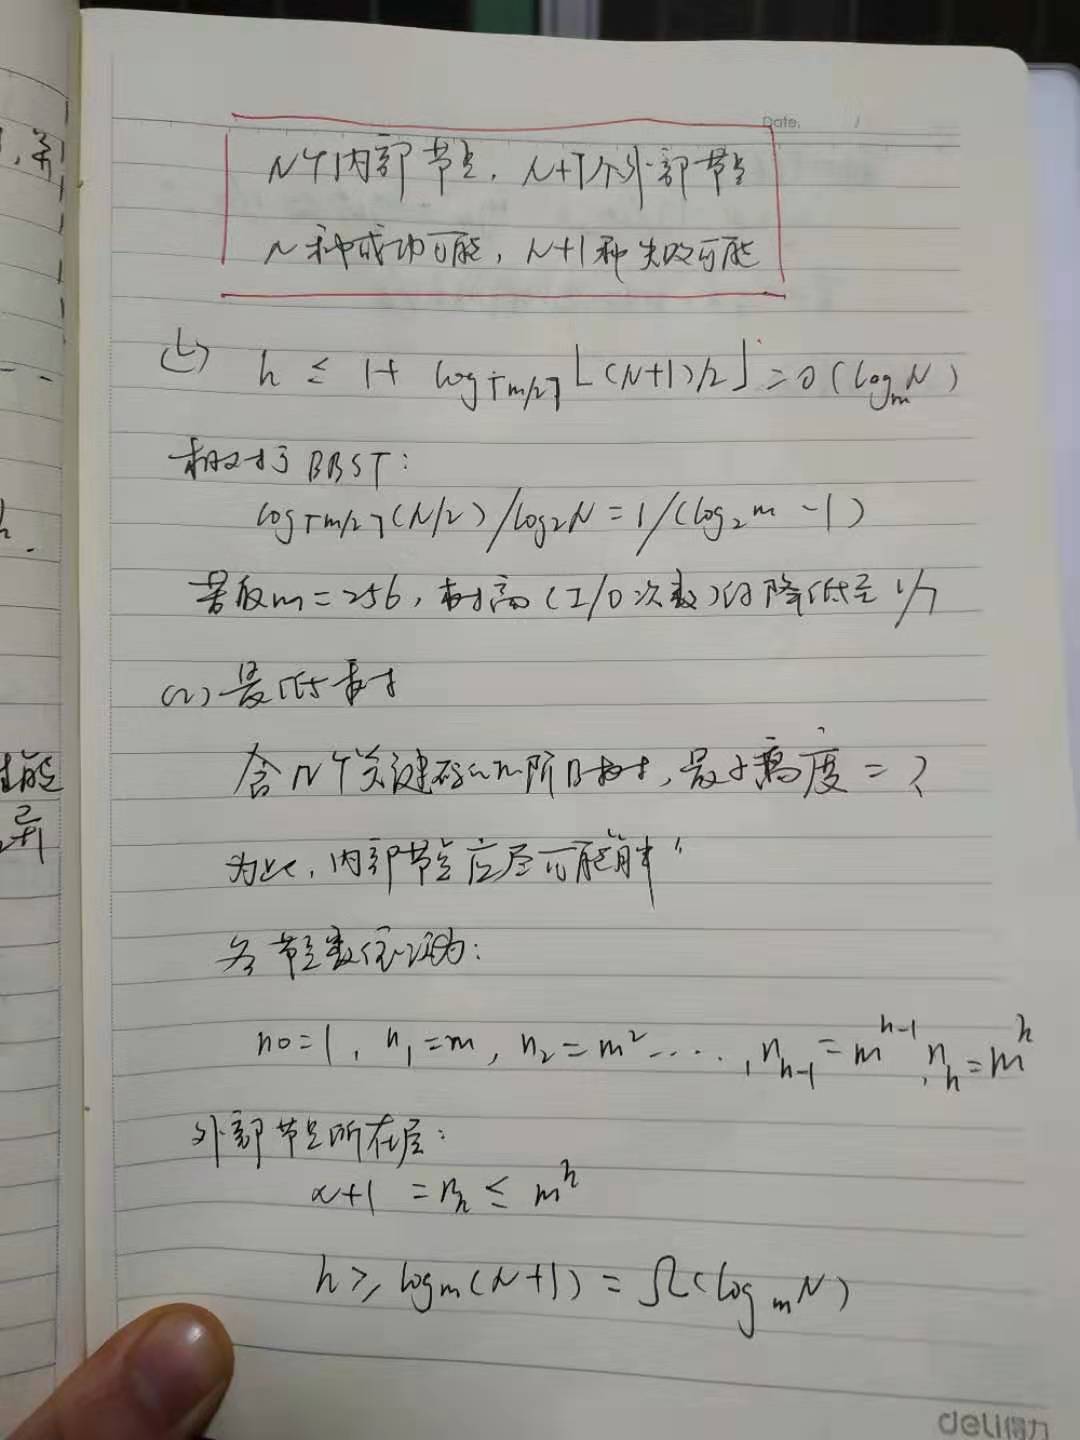 Date. /
N个内部节点,N+1个外部节点
N种成功可能,N+1种失败可能
h ≤ 1+ log⌈m/2⌉⌊(N+1)/2⌋=O(logmN)
相对于BBST:
log⌈m/2⌉(N/2)/log2N=1/(log2m -1)
若取m=256,树高(I/O次数)约降低至1/7
(2)最低树
含N个关键码的m阶B-树,最小高度=?
为此,内部节点应尽可能"胖"
各节点数依次为:
n0=1, n1=m, n2=m²....,nh-1=m^h-1,nh=m^h
外部节点所在层:
N+1 =nh ≤ m^h
h≥logm(N+1)=Ω(logmN)
deli得力
能
异